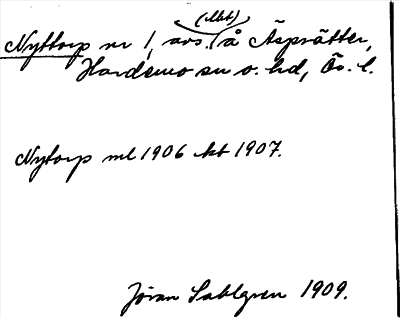 (Mbt)
Nyttorp nr 1, avs. å Äsprätter,
Hardemo sn o. hd, Ör. l.
Nytorp ml 1906 kbt 1907.
Jöran Sahlgren 1909.